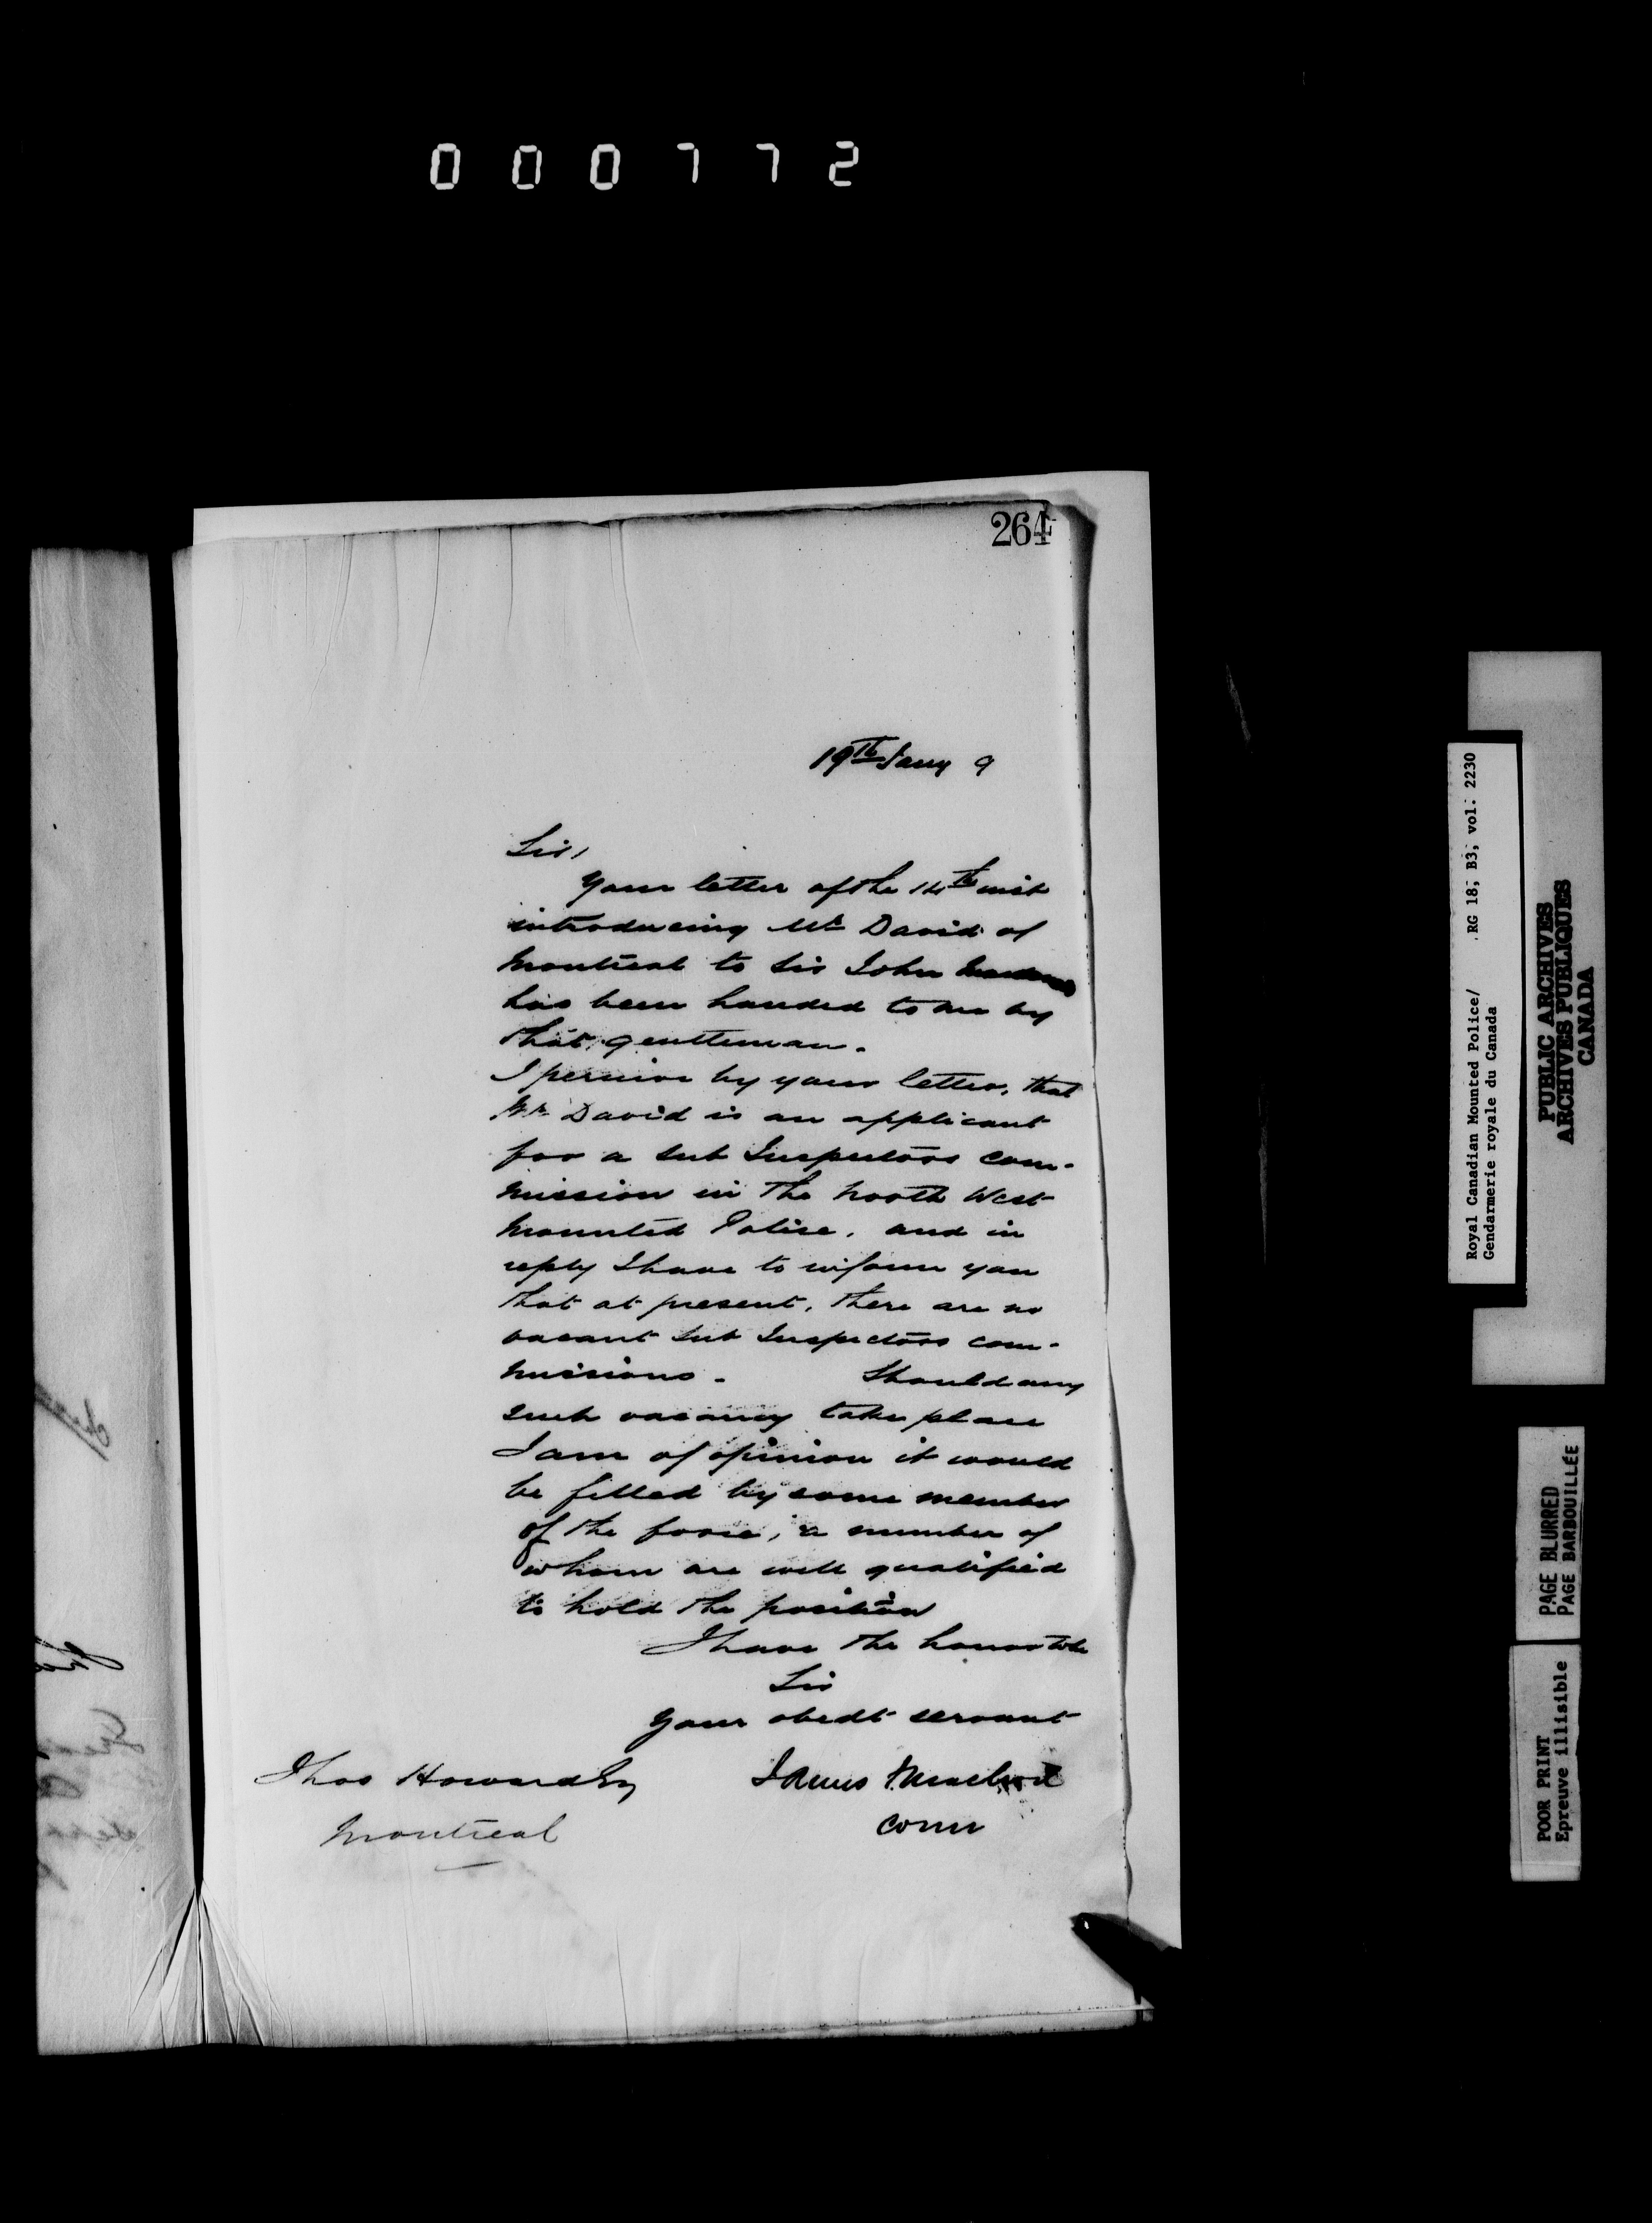 000772
264
19th Jany 9
Sir,
Your letter of the 14th inst
introducing Mr David of
Montreal to Sir John
has been handed to me by
that gentleman.
I perceive by your letter, that
Mr David is an applicant
for a Sub Inspectors com-
mission in the North West
Mounted Police, and in
reply I have to inform you
that at present, there are no
vacant Sub Inspectors com-
missions. Should any
such vacancy take place
I am of opinion it would
be filled by some member
of the force, a number of
whom are well qualified
to hold the position
I have the honor to be
Sir
Your obedt servant
James Macleod
Comr
Thos Howard Esq
Montreal
Royal Canadian Mounted Police/ RG 18, B3, vol. 2230
Gendarmerie royale du Canada
PUBLIC ARCHIVES
ARCHIVES PUBLIQUES
CANADA
PAGE BLURRED
PAGE BARBOUILLÉE
POOR PRINT
Epreuve illisible